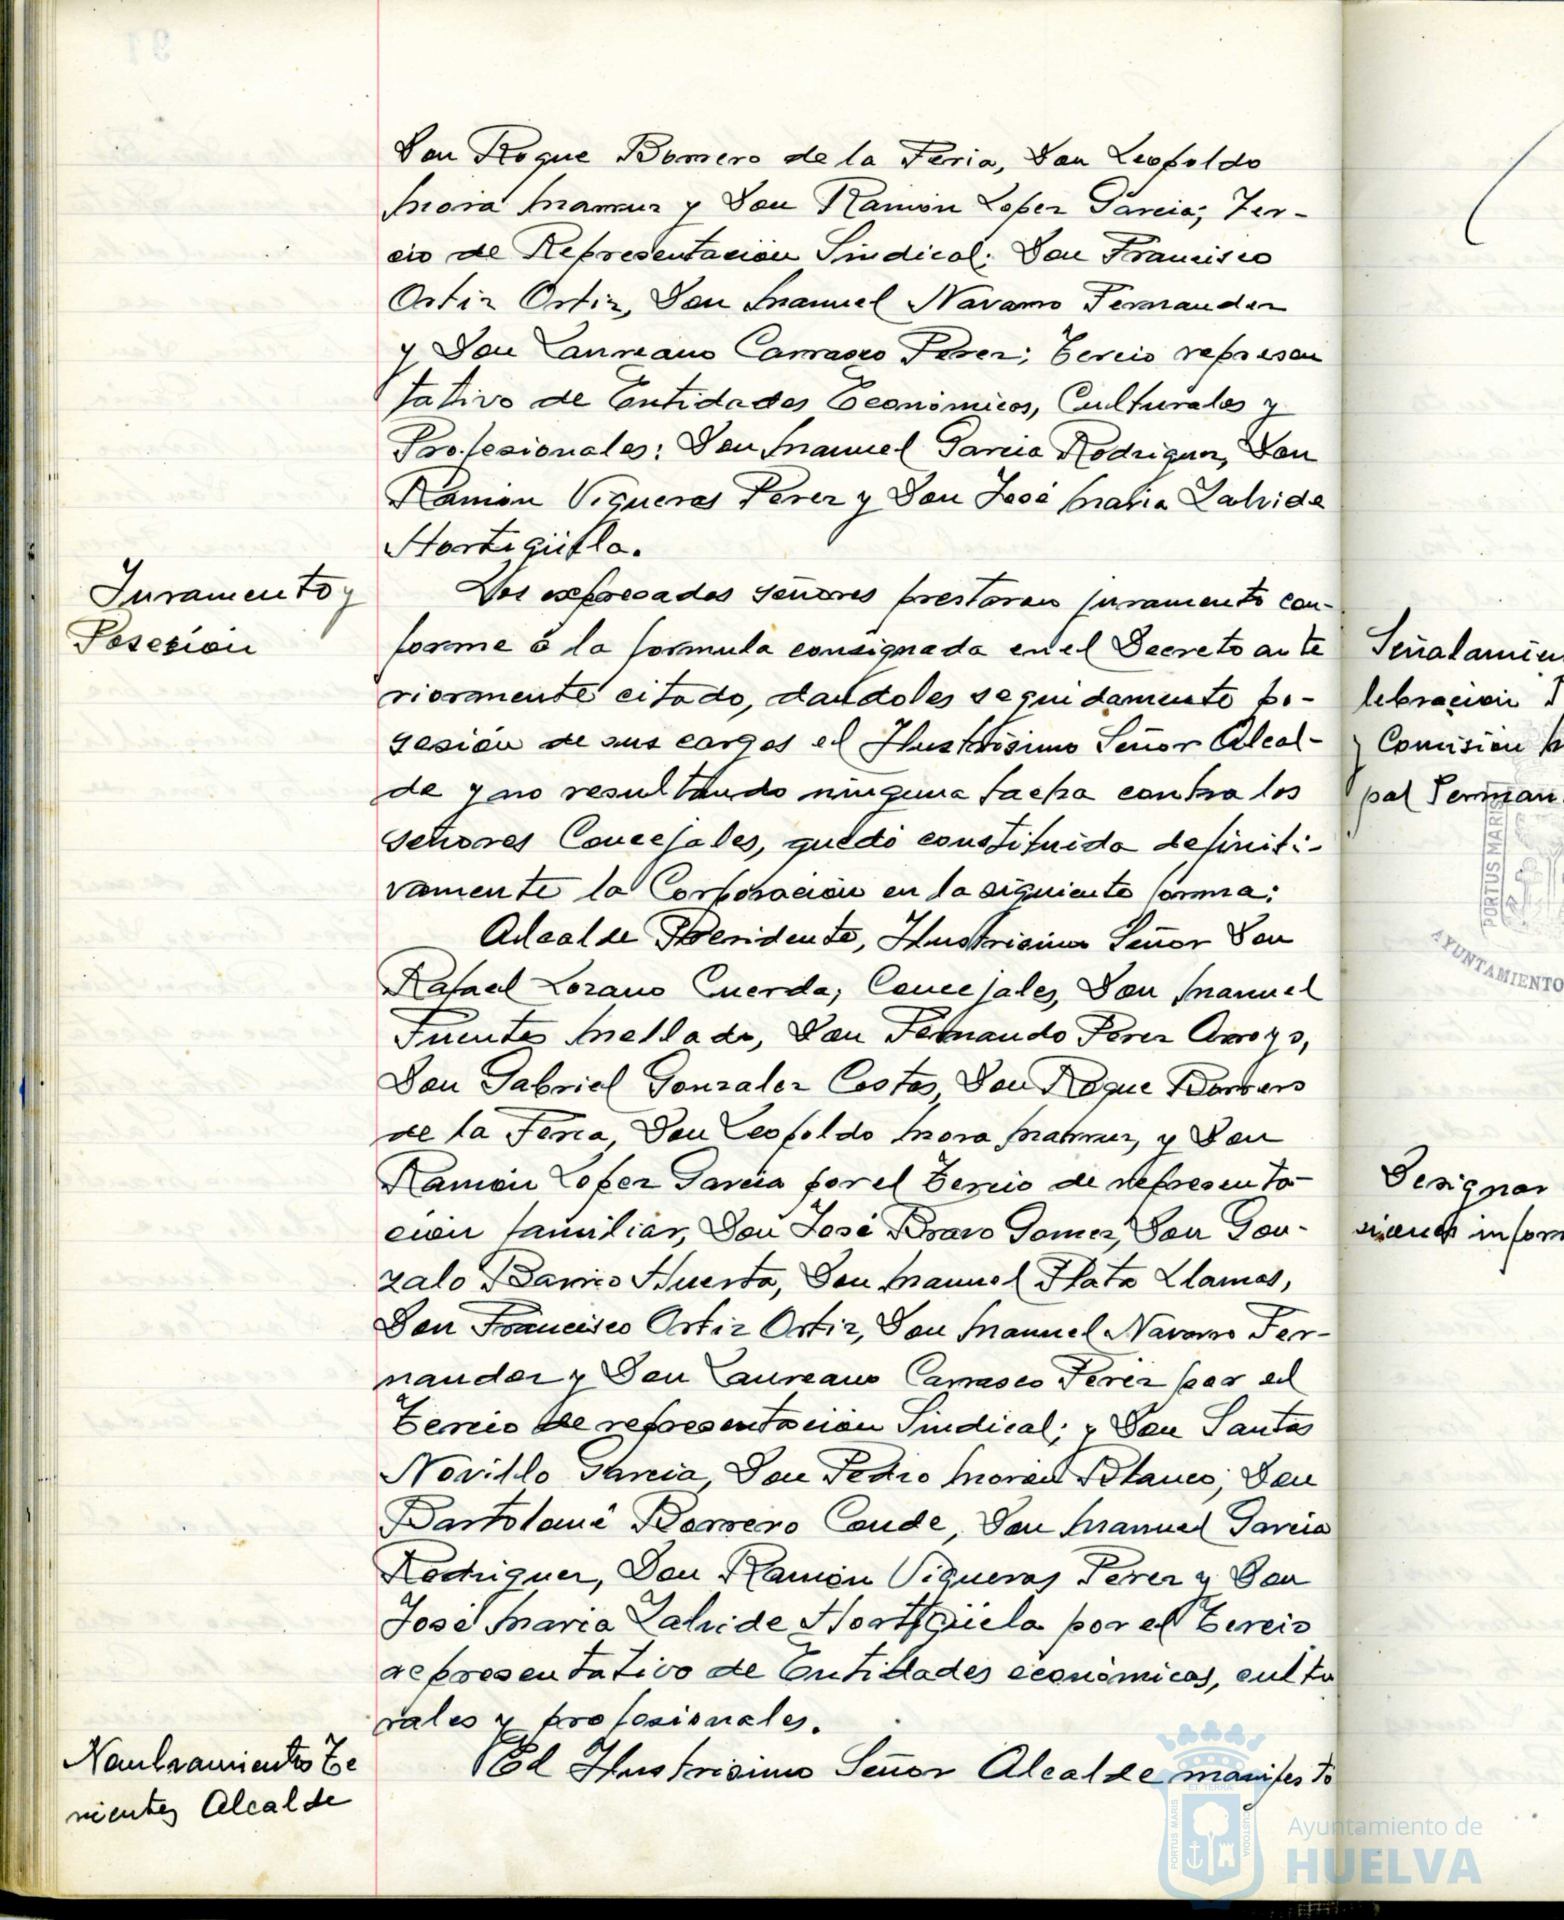 Don Roque Borrero de la Feria, Don Leopoldo
Mora Marruz y Don Ramón Lopez Garcia; Ter-
cio de Representación Sindical: Don Francisco
Ortiz Ortiz, Don Manuel Navarro Fernandez
y Don Laureano Carrasco Perez; Tercio represen
tativo de Entidades Económicas, Culturales y
Profesionales: Don Manuel Garcia Rodriguez, Don
Ramón Vigueras Perez y Don José Maria Zalvide
Hortigüela.
Juramento y
Posesión
Los expresados señores prestaron juramento con-
forme á la formula consignada en el Decreto ante
riormente citado, dandoles seguidamente po-
sesión de sus cargos el Ilustrisimo Señor Alcal-
de y no resultando ninguna tacha contra los
señores Concejales, quedó constituida definiti-
vamente la Corporación en la siguiente forma:
Alcalde Presidente, Ilustrisimo Señor Don
Rafael Lozano Cuerda; Concejales, Don Manuel
Fuentes Mellado, Don Fernando Perez Arroyo,
Don Gabriel Gonzalez Costas, Don Roque Borrero
de la Feria, Don Leopoldo Mora Marruz, y Don
Ramón Lopez Garcia por el Tercio de representa-
ción familiar, Don José Bravo Gomez, Don Gon-
zalo Barrio Huerta, Don Manuel Plata Llamas,
Don Francisco Ortiz Ortiz, Don Manuel Navarro Fer-
nandez y Don Laureano Carrasco Perez por el
Tercio de representación Sindical; y Don Santos
Novillo Garcia, Don Pedro Morón Blanco, Don
Bartolomé Borrero Conde, Don Manuel Garcia
Rodriguez, Don Ramón Vigueras Perez y Don
José Maria Zalvide Hortigüela por el Tercio
representativo de Entidades económicas, cultu
rales y profesionales.
Nombramientos Te
nientes Alcalde
El Ilustrisimo Señor Alcalde manifestó
Señalamien
lebración
y Comisión
pal Perman
PORTUS MARIS
AYUNTAMIENTO
Designar
siones inform
ET TERRÆ
PORTUS MARIS
CUSTODIA
Ayuntamiento de
HUELVA